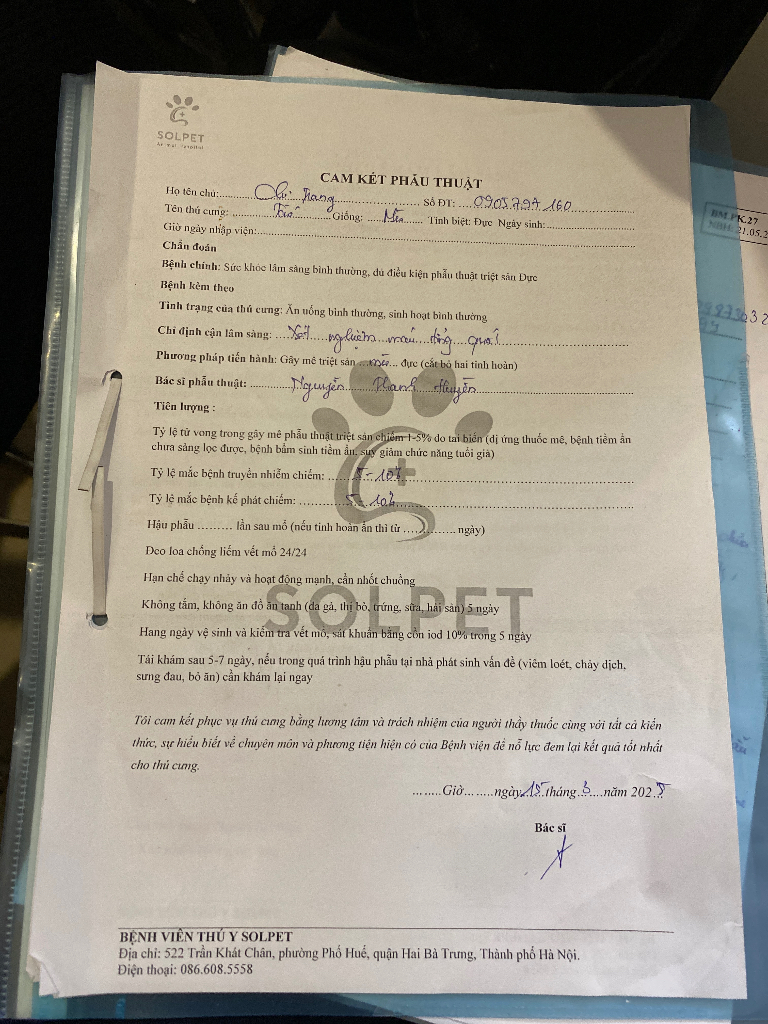 SOLPET
Animal Hospital
CAM KẾT PHẪU THUẬT
Họ tên chủ:........ Chị Trang ........ Số ĐT: 0905797160
Tên thú cưng: ........ Giống: ..... Mèo ..... Tính biệt: Đực Ngày sinh:........
Giờ ngày nhập viện:........
Chẩn đoán
Bệnh chính: Sức khỏe lâm sàng bình thường, đủ điều kiện phẫu thuật triệt sản Đực
Bệnh kèm theo
Tình trạng của thú cưng: Ăn uống bình thường, sinh hoạt bình thường
Chỉ định cận lâm sàng: ....Xét nghiệm máu tổng quát
Phương pháp tiến hành: Gây mê triệt sản ...mèo... đực (cắt bỏ hai tinh hoàn)
Bác sĩ phẫu thuật: ........ Nguyễn Thanh Huyền ........
Tiên lượng :
Tỷ lệ tử vong trong gây mê phẫu thuật triệt sản chiếm 1-5% do tai biến (dị ứng thuốc mê, bệnh tiềm ẩn
chưa sàng lọc được, bệnh bẩm sinh tiềm ẩn, suy giảm chức năng tuổi già)
Tỷ lệ mắc bệnh truyền nhiễm chiếm: ....5-10%........
Tỷ lệ mắc bệnh kế phát chiếm: ....5-10%........
Hậu phẫu ......... lần sau mổ (nếu tinh hoàn ẩn thì từ ............ ngày)
Đeo loa chống liếm vết mổ 24/24
Hạn chế chạy nhảy và hoạt động mạnh, cần nhốt chuồng
Không tắm, không ăn đồ ăn tanh (da gà, thị bò, trứng, sữa, hải sản) 5 ngày
Hang ngày vệ sinh và kiểm tra vết mổ, sát khuẩn bằng cồn iod 10% trong 5 ngày
Tái khám sau 5-7 ngày, nếu trong quá trình hậu phẫu tại nhà phát sinh vấn đề (viêm loét, chảy dịch,
sưng đau, bỏ ăn) cần khám lại ngay
SOLPET
Tôi cam kết phục vụ thú cưng bằng lương tâm và trách nhiệm của người thầy thuốc cùng với tất cả kiến
thức, sự hiểu biết về chuyên môn và phương tiện hiện có của Bệnh viện để nỗ lực đem lại kết quả tốt nhất
cho thú cưng.
........Giờ........ngày 15 tháng 3 năm 2025
Bác sĩ
BỆNH VIÊN THÚ Y SOLPET
Địa chỉ: 522 Trần Khát Chân, phường Phố Huế, quận Hai Bà Trưng, Thành phố Hà Nội.
Điện thoại: 086.608.5558